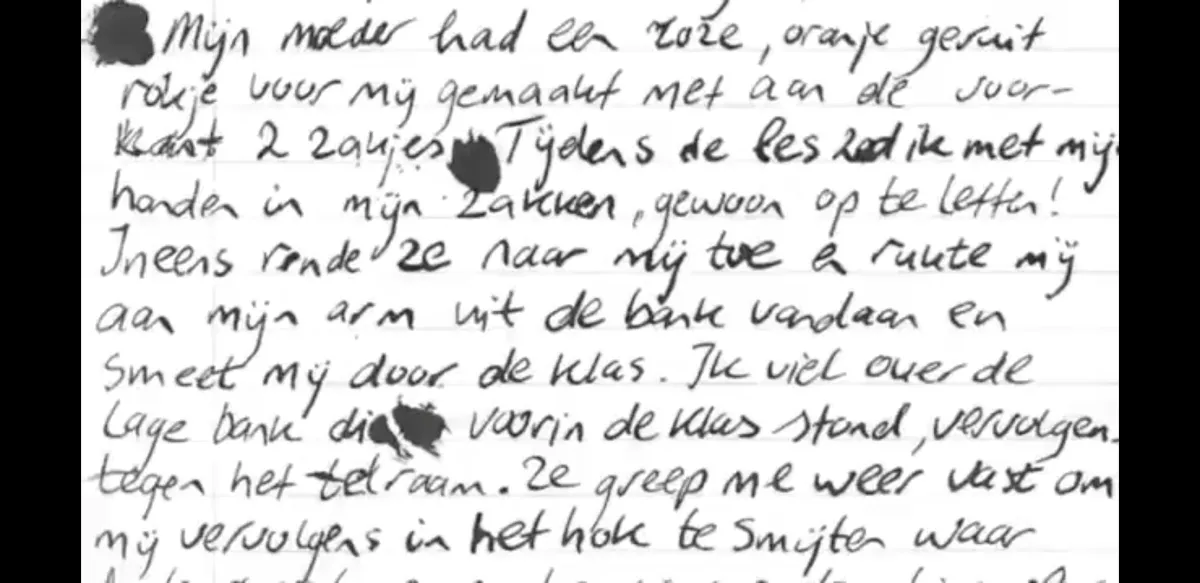 Mijn moeder had een roze, oranje geruit
rokje voor mij gemaakt met aan de voor-
kant 2 zakjes Tijdens de les zat ik met mijn
handen in mijn zakken, gewoon op te letten!
Ineens rende ze naar mij toe en rukte mij
aan mijn arm uit de bank vandaan en
smeet mij door de klas. Ik viel over de
lage bank die voorin de klas stond, vervolgens
tegen het telraam. Ze greep me weer vast om
mij vervolgens in het hok te smijten waar